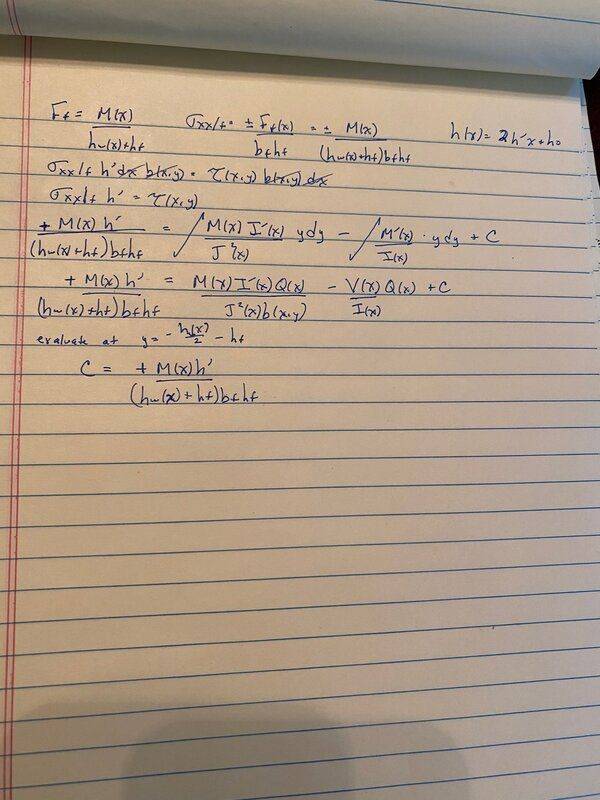 F_f = M(x) / (h_w(x)+h_f)    σ_xx/f = ± F_f(x) / (b_f h_f) = ± M(x) / ((h_w(x)+h_f) b_f h_f)    h(x) = 2h'x + h_0
σ_xx/f h' dx b(x,y) = τ(x,y) b(x,y) dx
σ_xx/f h' = τ(x,y)
+ M(x) h' / ((h_w(x)+h_f) b_f h_f) = ∫ M(x) I'(x) / I²(x) y dy - ∫ M'(x) / I(x) · y dy + C
+ M(x) h' / ((h_w(x)+h_f) b_f h_f) = M(x) I'(x) Q(x) / (I²(x) b(x,y)) - V(x) Q(x) / I(x) + C
evaluate at y = - h(x)/2 - h_f
C = + M(x) h' / ((h_w(x)+h_f) b_f h_f)